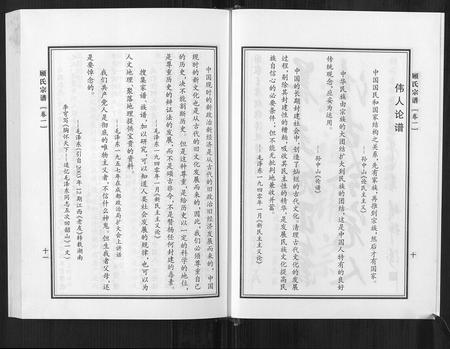 顾氏宗谱 [卷一]
伟人论谱
中国国民和国家结构之关系，先有家族，再推到宗族，然后才有国家。
——孙中山《民族主义》
中华民族由宗族的大团结扩大到民族的团结，这是中国人特有的良好
传统观念，应妥为运用。
——孙中山《论谱》
中国的长期封建社会中，创造了灿烂的古代文化。清理古代文化的发展
过程，剔除其封建性的糟粕，吸收其民主性的精华，是发展民族文化提高民
族自信心的必要条件；但不能无批判地兼收并蓄。
——毛泽东一九四〇年一月《新民主主义论》
十
顾氏宗谱 [卷一]
中国现时的新政治新经济是从古代的旧政治旧经济发展而来的，中国
现时的新文化也是从古代的旧文化发展而来的，因此，我们必须尊重自己
的历史，决不能割断历史。但是这种尊重，是给历史以一定的科学的地位，
是尊重历史的辩证法的发展，而不是颂古非今，不是赞扬任何封建的毒素。
——毛泽东一九四〇年一月《新民主主义论》
搜集家谱、族谱，加以研究，可以知道人类社会发展的规律，也可以为
人文地理、聚落地理提供宝贵的资料。
——毛泽东一九五七年在成都政治局扩大会上讲话
我们共产党人是彻底的唯物主义者，不信什么神鬼。但生我者父母，还
是要悼念的。
——毛泽东（引自2003年12期江西《老友》转载湖南
李育写《胸怀天下——追忆毛泽东同志五次回韶山》一文）
十一